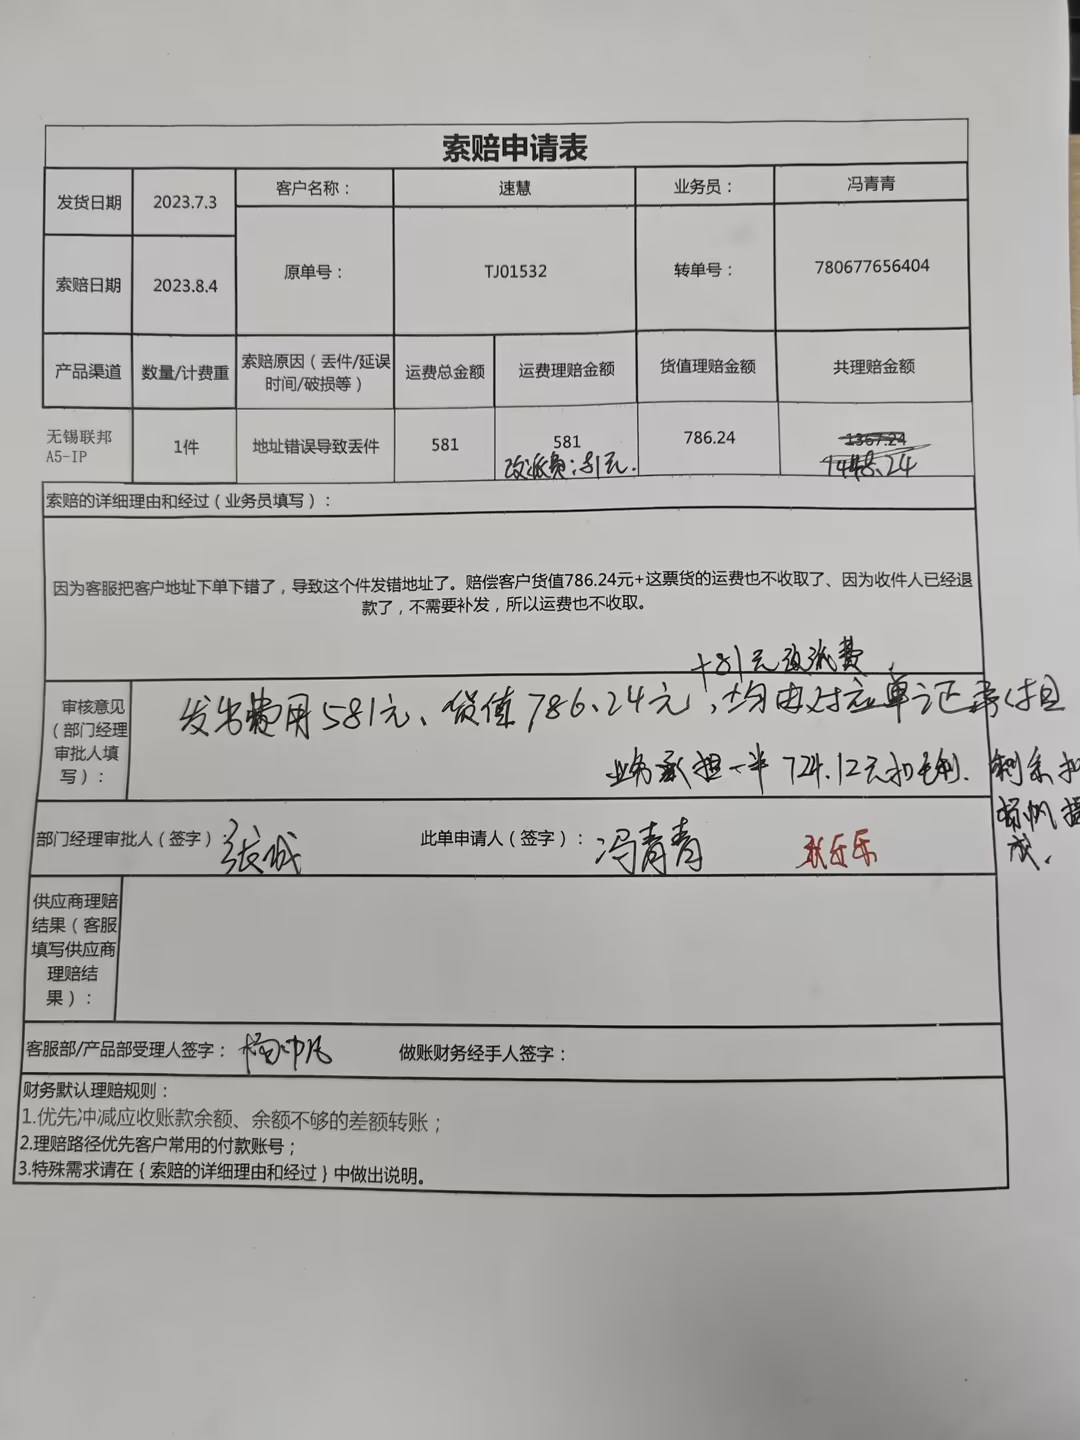 索赔申请表
发货日期 2023.7.3 客户名称： 速慧 业务员： 冯青青
索赔日期 2023.8.4 原单号： TJ01532 转单号： 780677656404
产品渠道 数量/计费重 索赔原因（丢件/延误时间/破损等） 运费总金额 运费理赔金额 货值理赔金额 共理赔金额
无锡联邦A5-IP 1件 地址错误导致丢件 581 581 786.24 1367.24
改派费：81元. 1448.24
索赔的详细理由和经过（业务员填写）：
因为客服把客户地址下单下错了，导致这个件发错地址了。赔偿客户货值786.24元+这票货的运费也不收取了、因为收件人已经退
款了，不需要补发，所以运费也不收取。
+81元改派费
审核意见（部门经理审批人填写）： 发出费用581元、货值786.24元，均由对应单证承担
业务承担一半 724.12元扣毛利. 剩余扣
提
成.
部门经理审批人（签字） 张成 此单申请人（签字）： 冯青青 张乐乐
供应商理赔结果（客服填写供应商理赔结果）：
客服部/产品部受理人签字： 做账财务经手人签字：
财务默认理赔规则：
1.优先冲减应收账款余额、余额不够的差额转账；
2.理赔路径优先客户常用的付款账号；
3.特殊需求请在｛索赔的详细理由和经过｝中做出说明。